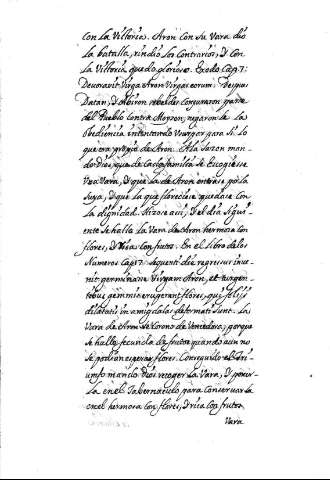 con la Vittoria. Aron con su Vara dio
la batalla, rindio los Contrarios, y con
la Vittoria quedo glorioso. Exodo Cap. 7:
Devoravit Virga Aron Virgas eorum. Despues
Datan, y Abiron rebeldes conjuraron parte
del Pueblo contra Moyson, negaron la
obediencia intentando usurpar para si lo
que era propio de Aron. A la sazon man-
do Dios, que de cada familia se escogiesse
una Vara, y que la de Aron entrase por la
suya, y que la que floreciese quedase con
la dignidad. Hizose assi, y el dia sigui-
ente se halla la Vara de Aron hermosa con
flores, y rica con frutos. En el libro de los
Numeros Cap. 17. sequenti die regresus inve-
nit germinasse Virgam Aron, et turgen-
tibus gemmis eruperant flores, qui folijs
dilatatis in amigdalas deformati sunt. La
Vara de Aron se corono de Vencedora, porque
se hallo fecunda de frutos quando aun no
se podian esperar flores. Conseguido el Tri-
umfo mando Dios recoger la Vara, y poner-
la en el Tabernaculo para conservarla
en el hermosa con flores, y rica con frutos.
Vara